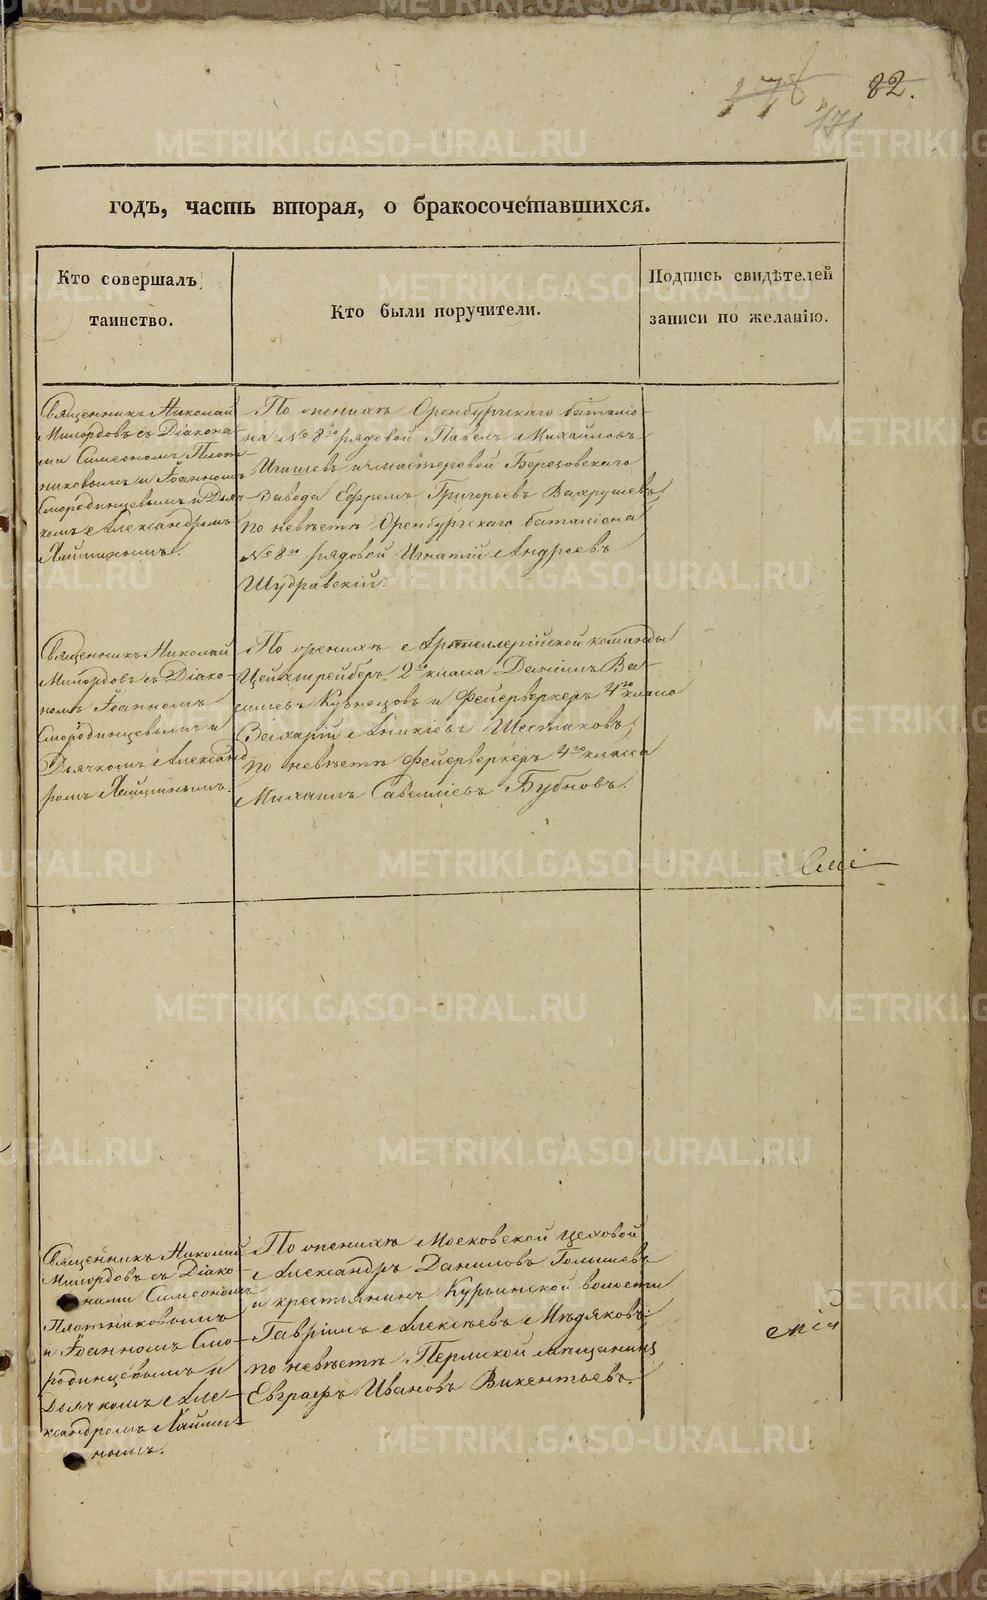 82.
171
годъ, часть вторая, о бракосочетавшихся.
Кто совершалъ
таинство.
Кто были поручители.
Подпись свидѣтелей
записи по желанію.
Священникъ Николай
Милордовъ съ Діакона-
ми Симеономъ Плот-
никовымъ и Іоанномъ
Смородинцевымъ и Дья-
комъ Александромъ
По женихѣ Оренбургскаго баталіо-
на № 8го рядовой Павелъ Михайловъ
и мастеровой Березовскаго
Завода Ефремъ Григорьевъ Вахрушевъ,
по невѣстѣ Оренбургскаго баталіона
№ 8го рядовой Игнатій Андреевъ
Шудравскій.
Священникъ Николай
Милордовъ съ Діако-
номъ Іоанномъ
Смородинцевымъ и
Дьячкомъ Александ-
ромъ
По женихѣ Артиллерійской команды
Цейхшрейберъ 2го класа Даніилъ Ва-
сильевъ Кузнецовъ и Фейерверкеръ 4го класа
Захарій Аникіевъ Шестаковъ,
по невѣстѣ Фейерверкеръ 4го класса
Михаилъ Савеліевъ Бубновъ.
Священникъ Николай
Милордовъ съ Діако-
нами Симеономъ
Плотниковымъ
и Іоанномъ Смо-
родинцевымъ и
Дьячкомъ Але-
ксандромъ
По женихѣ Московской цеховой
Александръ Даниловъ Голышевъ
и крестьянинъ Курьинской волости
Гавріилъ Алексѣевъ Мѣдяковъ;
по невѣстѣ Пермской мѣщанинъ
Евграфъ Ивановъ Викентьевъ.
METRIKI.GASO-URAL.RU